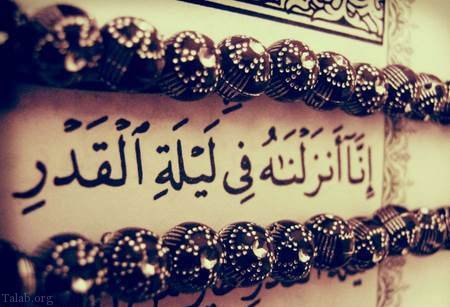 إِنَّآ أَنزَلْنَـٰهُ فِى لَيْلَةِ ٱلْقَدْرِ
Talab.org